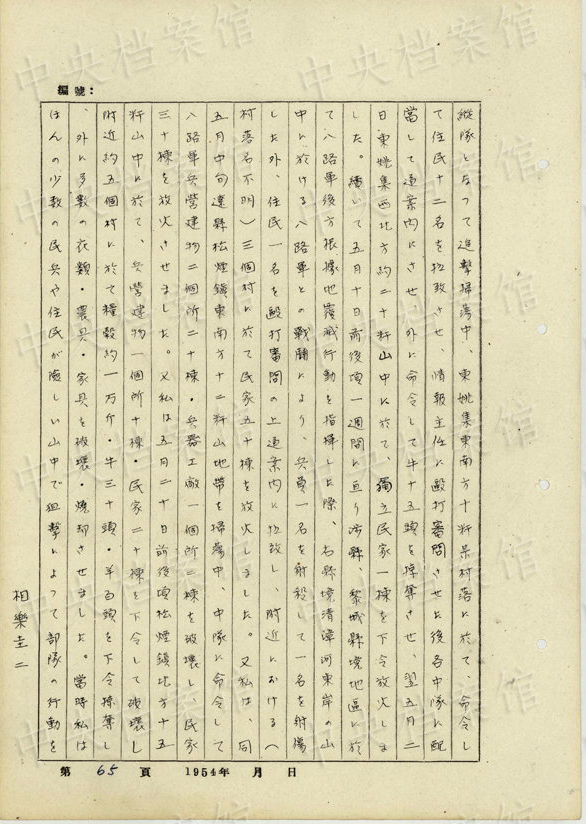 編號：
縱隊となって追擊掃蕩中、東姚集東南方十粁某村落に於て、命令し
て住民十二名を拉致させ、情報主任に毆打審問させた後各中隊に配
當して道案内にさせ、外に命令して牛十五頭を掠奪させ、翌五月二
日東姚集西北方約二十粁山中に於て、獨立民家一棟を下令放火しま
した。續いて五月十日前後頃一週間に亘り涉縣、黎城縣境地區に於
て八路軍後方根據地覆滅行動を指揮した際、右縣境清漳河東岸の山
中に於ける八路軍との戰鬪により、兵員一名を射殺して一名を射傷
した外、住民一名を毆打審問の上道案内に拉致し、附近における（
村落名不明）三個村に於て民家五十棟を放火しました。又私は、同
五月中旬遼縣松煙鎮東南方十二粁山地帶を掃蕩中、中隊に命令して
八路軍兵營建物二個所二十棟・兵器工廠一個所二棟を破壞し、民家
三十棟を放火させました。又私は五月二十日前後頃松煙鎮北方十五
粁山中に於て、兵營建物一個所十棟・民家二十棟を下令して破壞し
附近約五個村に於て糧穀約一万斤・牛三十頭・羊百頭を下令掠奪し
、外に多數の衣類・農具・家具を破壞・燒却させました。當時私は
ほんの少數の民兵や住民が險しい山中で狙擊によって部隊の行動を
相樂圭二
第 65 頁 1954年 月 日
中央档案馆